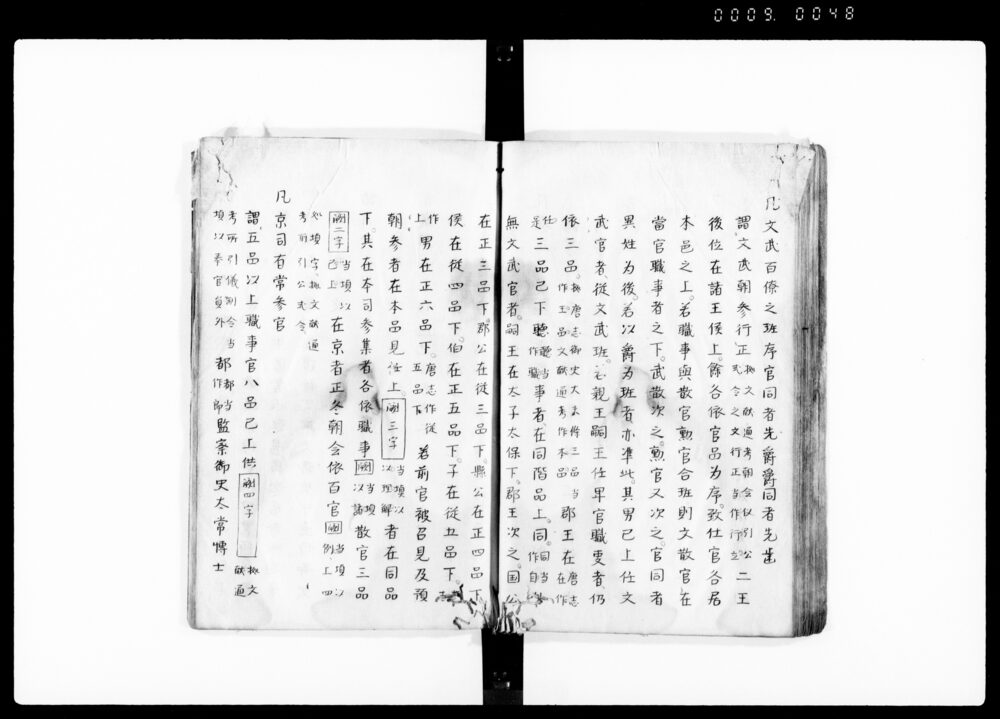 0009. 0048
凡文武百僚之班序官同者先爵爵同者先齒
謂文武朝参行正按文献通考朝会儀引公式令之文行正当作行立二王
後位在諸王侯上餘各依官品為序致仕官各居
本邑之上若職事與散官勲官合班則文散官在
當官職事者之下武散次之勲官又次之官同者
異姓為後若以爵為班者亦準此其男已上任文
武官者從文武班若親王嗣王任卑官職叓者仍
依三品按唐志御史大夫條三品当作王品文献通考作本品郡王在唐志在作任
是三品已下聽聽当作職事者在同階品上同同当作自
無文武官者嗣王在太子太保下郡王次之国公
在正三品下郡公在從三品下縣公在正四品下
侯在從四品下伯在正五品下子在從五品下
上男在正六品下唐志作從五品下若前官被召見及預
朝参者在本品見任上闕三字当填以以理解者在同品
下其在本司参集者各依職事闕当填以諸散官三品
闕二字当填以已上在京者正冬朝会依百官闕当填以例上四
字按文献通考所引公式令
凡京司有常参官
謂五品以上職事官八品已上供闕四字按文献通
考所引儀制令当填以奉官員外都都当作郎監察御史太常博士